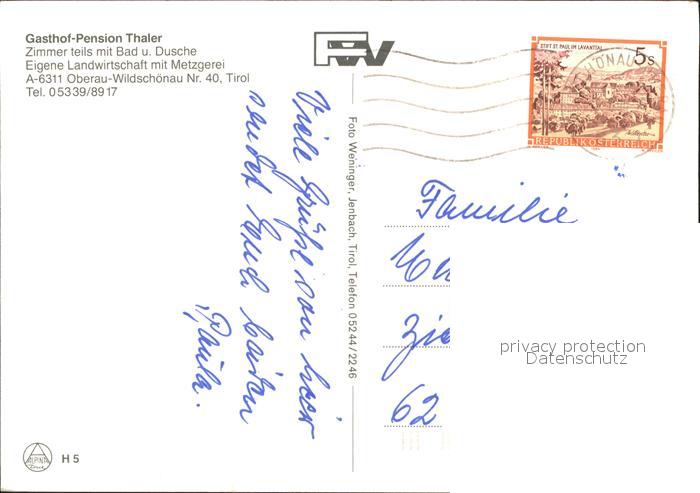 Gasthof-Pension Thaler
Zimmer teils mit Bad u. Dusche
Eigene Landwirtschaft mit Metzgerei
A-6311 Oberau-Wildschönau Nr. 40, Tirol
Tel. 05339/8917
FW
STIFT ST. PAUL IM LAVANTTAL
5s
REPUBLIK ÖSTERREICH
Viele Grüße von hier
sendet Euch beiden
Paula.
Foto Weninger, Jenbach, Tirol, Telefon 05244/2246
Familie
Zie
62
privacy protection
Datenschutz
ALPINA
H 5